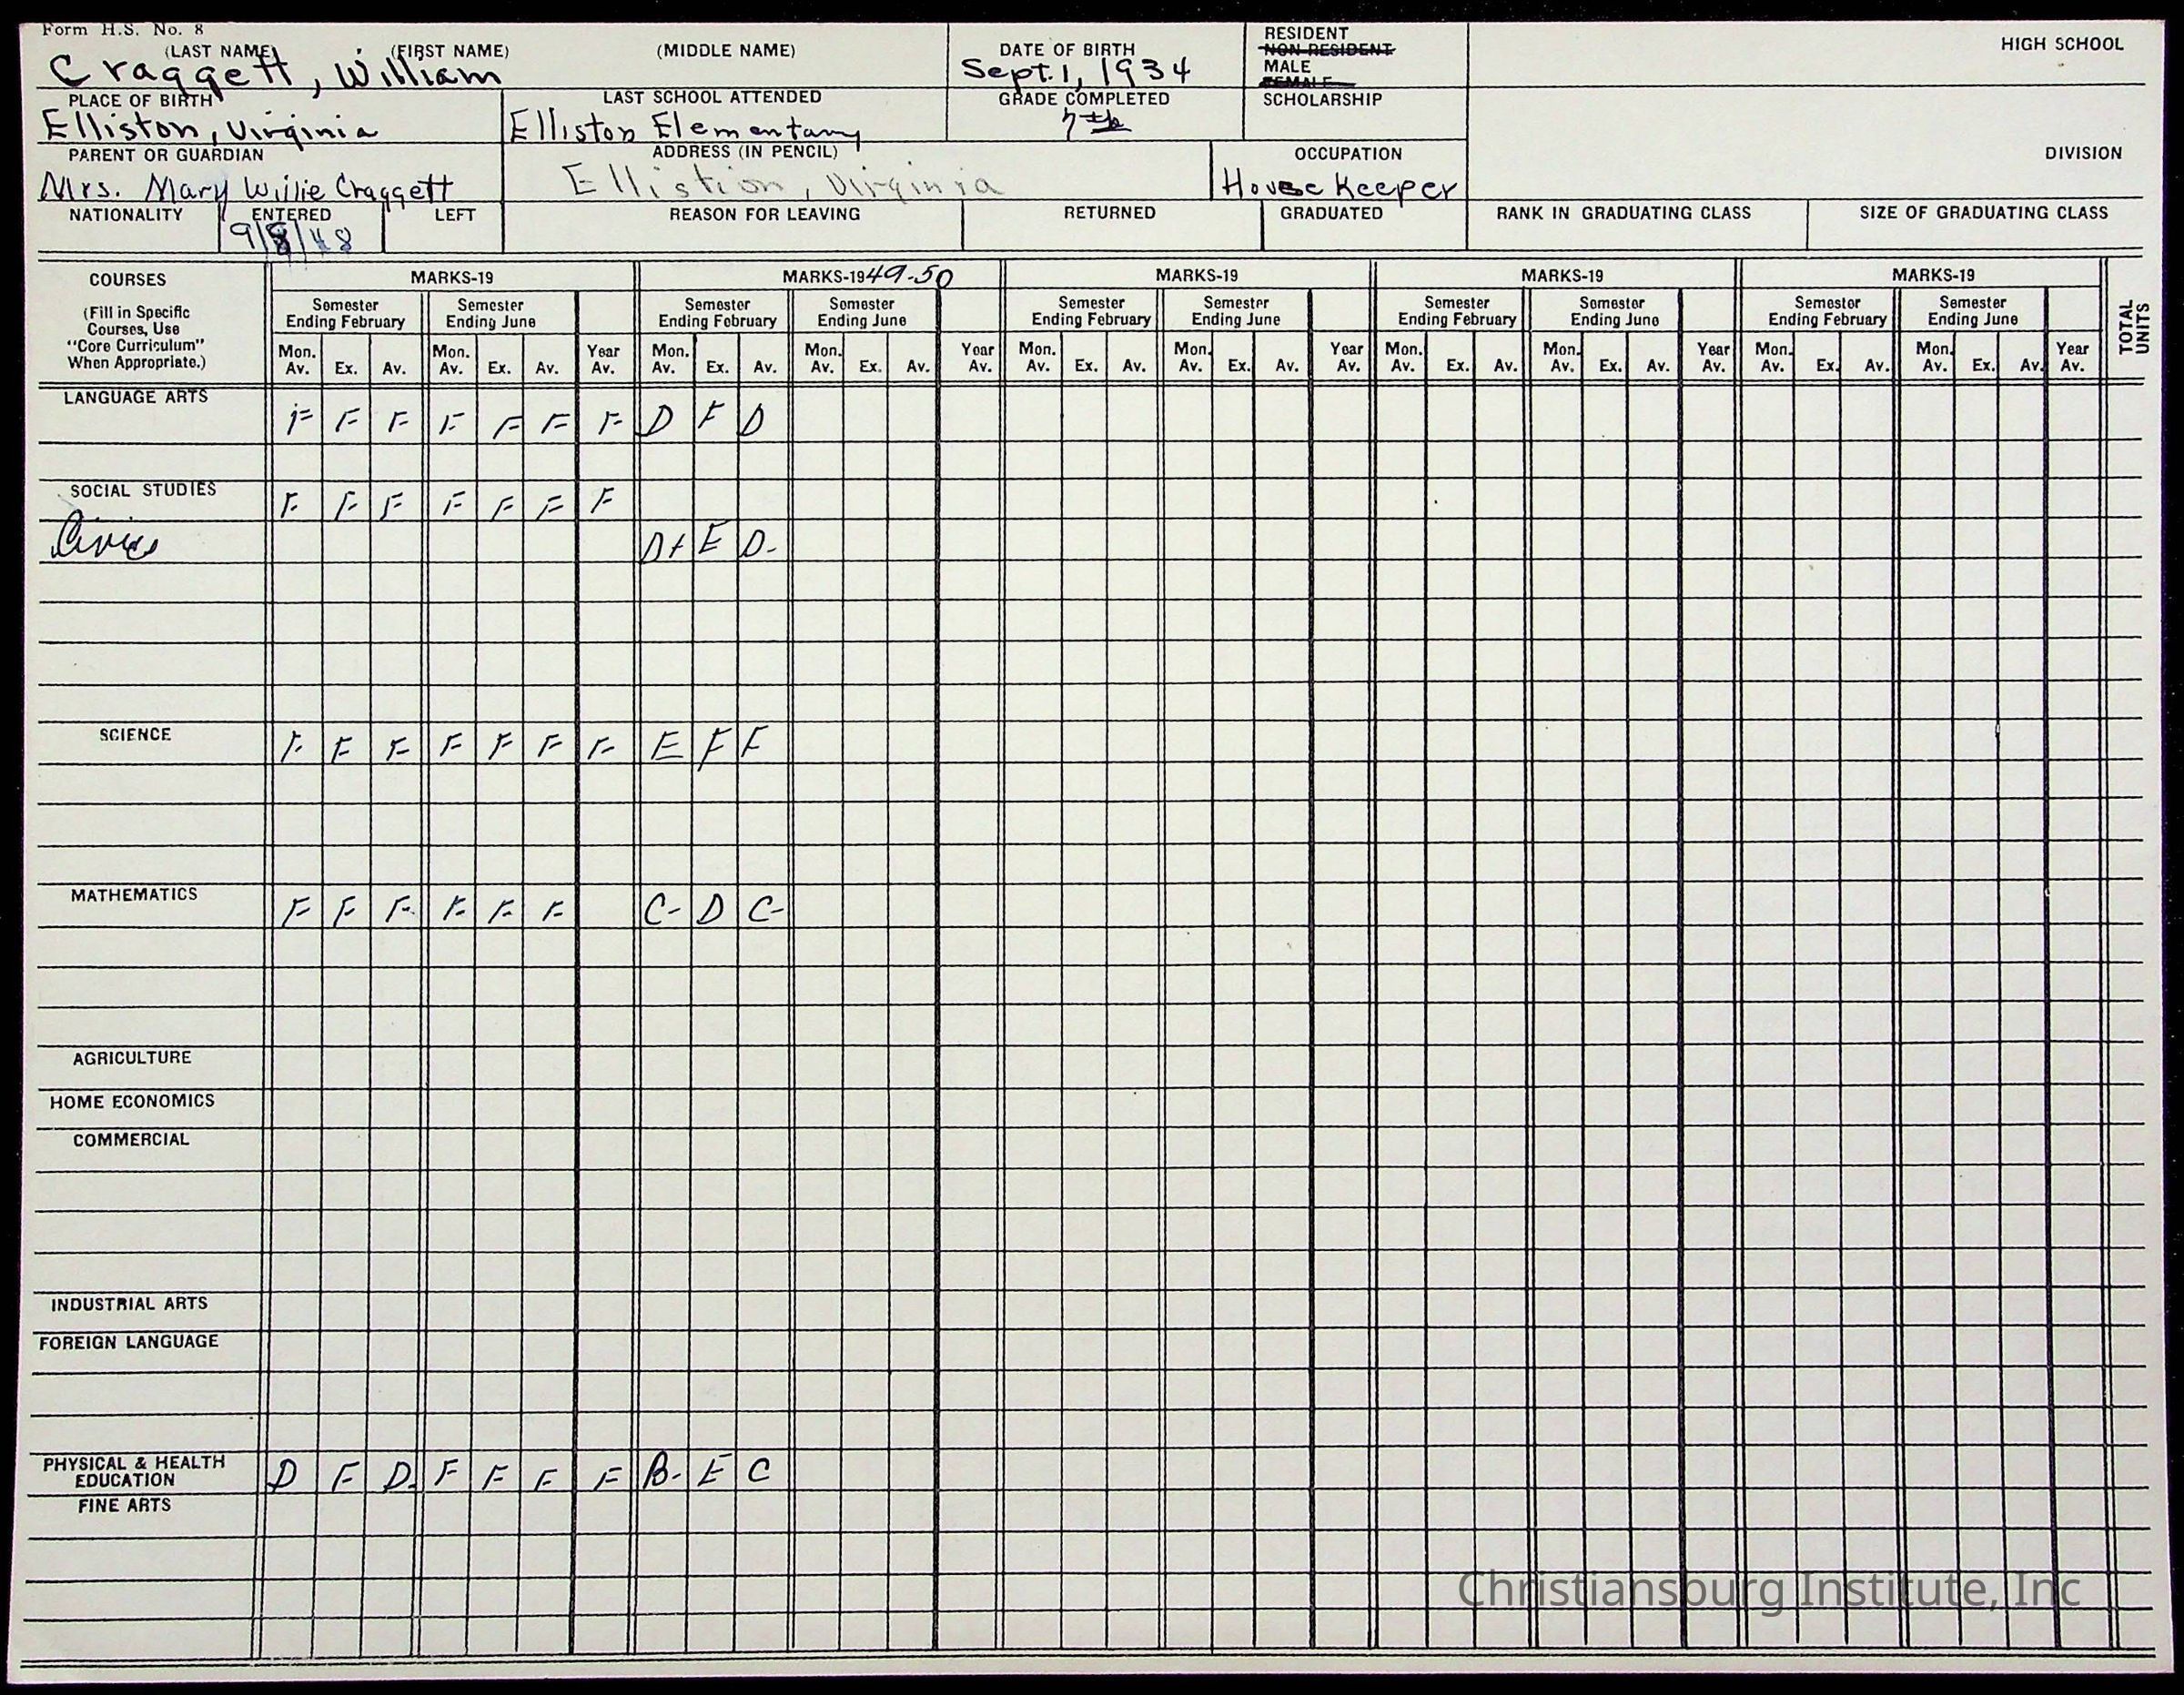 Form H.S. No. 8
(LAST NAME) (FIRST NAME) (MIDDLE NAME) DATE OF BIRTH RESIDENT HIGH SCHOOL
NON-RESIDENT
Craggett, William Sept. 1, 1934 MALE
FEMALE
PLACE OF BIRTH LAST SCHOOL ATTENDED GRADE COMPLETED SCHOLARSHIP
Elliston, Virginia Elliston Elementary 7th
PARENT OR GUARDIAN ADDRESS (IN PENCIL) OCCUPATION DIVISION
Mrs. Mary Willie Craggett Ellistion, Virginia House Keeper
NATIONALITY ENTERED LEFT REASON FOR LEAVING RETURNED GRADUATED RANK IN GRADUATING CLASS SIZE OF GRADUATING CLASS
9/8/48
COURSES MARKS-19 MARKS-1949-50 MARKS-19 MARKS-19 MARKS-19 TOTAL UNITS
(Fill in Specific Semester Semester Semester Semester Semester Semester Semester Semester Semester Semester
Courses, Use Ending February Ending June Ending February Ending June Ending February Ending June Ending February Ending June Ending February Ending June
"Core Curriculum" Mon. Mon. Year Mon. Mon. Year Mon. Mon. Year Mon. Mon. Year Mon. Mon. Year
When Appropriate.) Av. Ex. Av. Av. Ex. Av. Av. Av. Ex. Av. Av. Ex. Av. Av. Av. Ex. Av. Av. Ex. Av. Av. Av. Ex. Av. Av. Ex. Av. Av. Av. Ex. Av. Av. Ex. Av. Av.
LANGUAGE ARTS
F F F F F F F D F D
SOCIAL STUDIES
F F F F F F F
Civics D+ E D-
SCIENCE
F F F F F F F E F F
MATHEMATICS
F F F F F F C- D C-
AGRICULTURE
HOME ECONOMICS
COMMERCIAL
INDUSTRIAL ARTS
FOREIGN LANGUAGE
PHYSICAL & HEALTH
EDUCATION D F D- F F F F B- E C
FINE ARTS
Christiansburg Institute, Inc